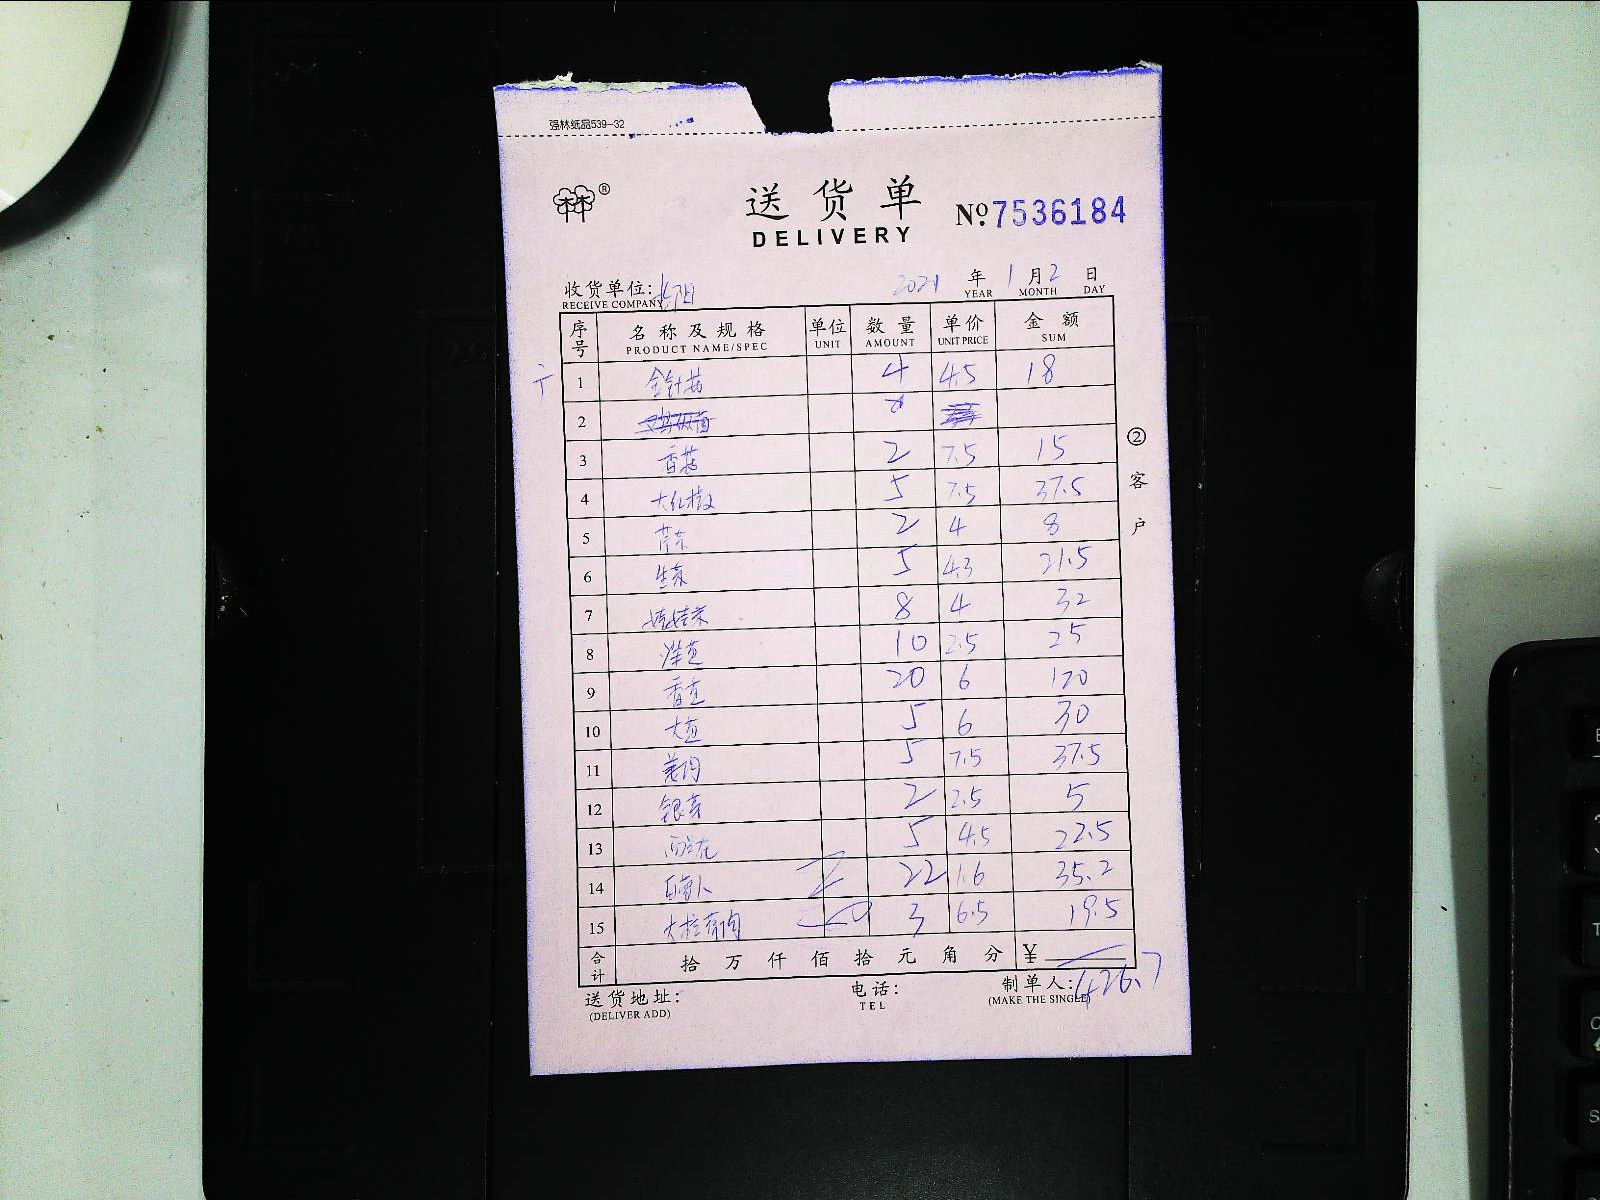 强林纸品539-32
林®
送货单
DELIVERY
No.7536184
收货单位:
RECEIVE COMPANY
2021 年 1 月 2 日
YEAR MONTH DAY
序号 名称及规格 单位 数量 单价 金额
PRODUCT NAME/SPEC UNIT AMOUNT UNIT PRICE SUM
1 金针菇 4 4.5 18
2
3 香菇 2 7.5 15
4 大红椒 5 7.5 37.5
5 芹菜 2 4 8
6 生菜 5 4.3 21.5
7 娃娃菜 8 4 32
8 洋芋 10 2.5 25
9 香 20 6 120
10 大 5 6 30
11 姜 5 7.5 37.5
12 银芽 2 2.5 5
13 西兰花 5 4.5 22.5
14 白萝卜 22 1.6 35.2
15 大 3 6.5 19.5
合计 拾万仟佰拾元角分 ¥ 426.7
送货地址: 电话: 制单人:
(DELIVER ADD) TEL (MAKE THE SINGLE)
②客户